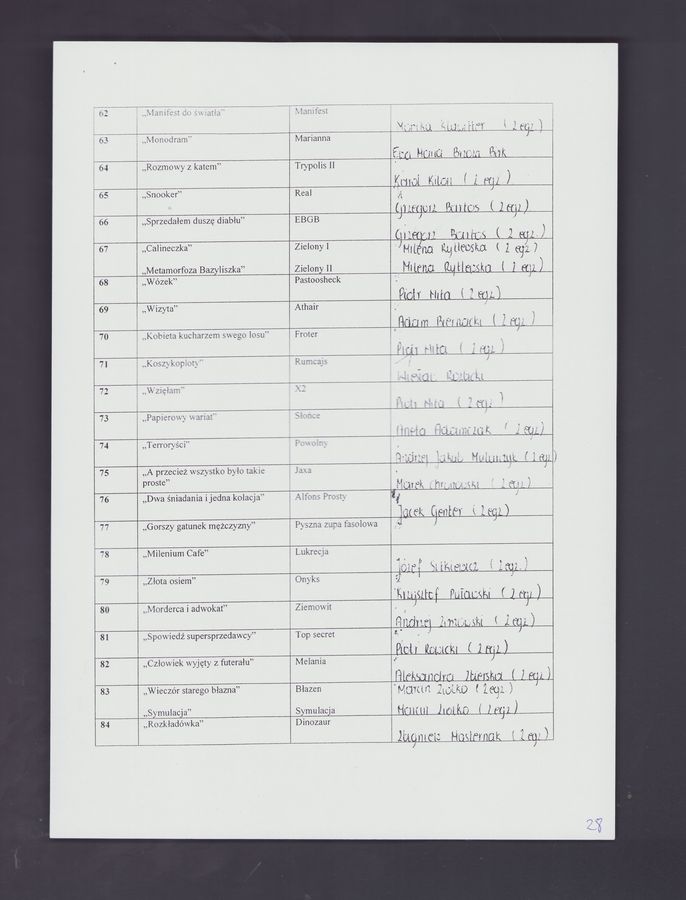 62 „Manifest do światła" Manifest
Monika ( 2 egz )
63 „Monodram" Marianna
Ewa Maria
64 „Rozmowy z katem" Trypolis II
Karol Kilon ( 2 egz )
65 „Snooker" Real
Grzegorz Bartos ( 2 egz )
66 „Sprzedałem duszę diabłu" EBGB
Grzegorz Bartos ( 2 egz. )
67 „Calineczka" Zielony I Milena Rytlewska ( 2 egz )
„Metamorfoza Bazyliszka" Zielony II Milena Rytlewska ( 2 egz )
68 „Wózek" Pastoosheck
Piotr Nita ( 2 egz )
69 „Wizyta" Athair
Adam Biernacki ( 2 egz. )
70 „Kobieta kucharzem swego losu" Froter
Piotr Nita ( 2 egz )
71 „Koszykoploty" Rumcajs
72 „Wzięłam" X2
Piotr Nita ( 2 egz )
73 „Papierowy wariat" Słońce
Aneta Adamczak ( 2 egz )
74 „Terroryści" Powolny
Andrzej Jakub ( 2 egz )
75 „A przecież wszystko było takie Jaxa
proste"
Marek ( 2 egz )
76 „Dwa śniadania i jedna kolacja" Alfons Prosty
Jacek Genter ( 2 egz )
77 „Gorszy gatunek mężczyzny" Pyszna zupa fasolowa
78 „Milenium Cafe" Lukrecja
Józef ( 2 egz. )
79 „Złota osiem" Onyks
Krzysztof Puławski ( 2 egz )
80 „Morderca i adwokat" Ziemowit
Andrzej Zimowski ( 2 egz )
81 „Spowiedź supersprzedawcy" Top secret
Piotr Rowicki ( 2 egz )
82 „Człowiek wyjęty z futerału" Melania
Aleksandra Zbierska ( 2 egz )
83 „Wieczór starego błazna" Błazen Marcin Ziołko ( 2 egz )
„Symulacja" Symulacja Marcin Ziołko ( 2 egz )
84 „Rozkładówka" Dinozaur
Zbigniew Masternak ( 2 egz )
28